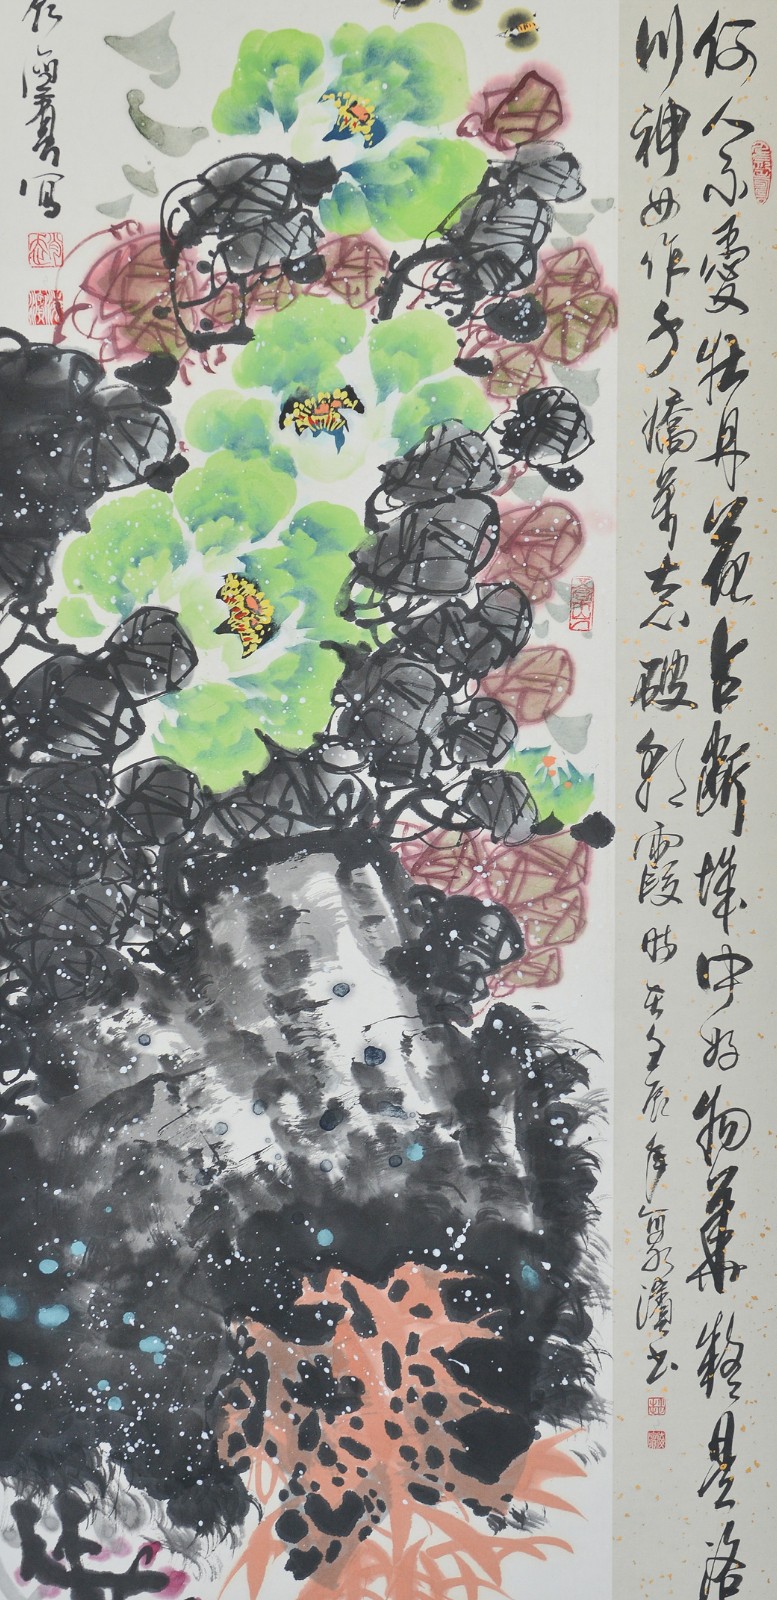 何人不愛牡丹花占断城中好物華疑是洛
川神女作千嬌萬态破朝霞时在壬辰年濱书
写